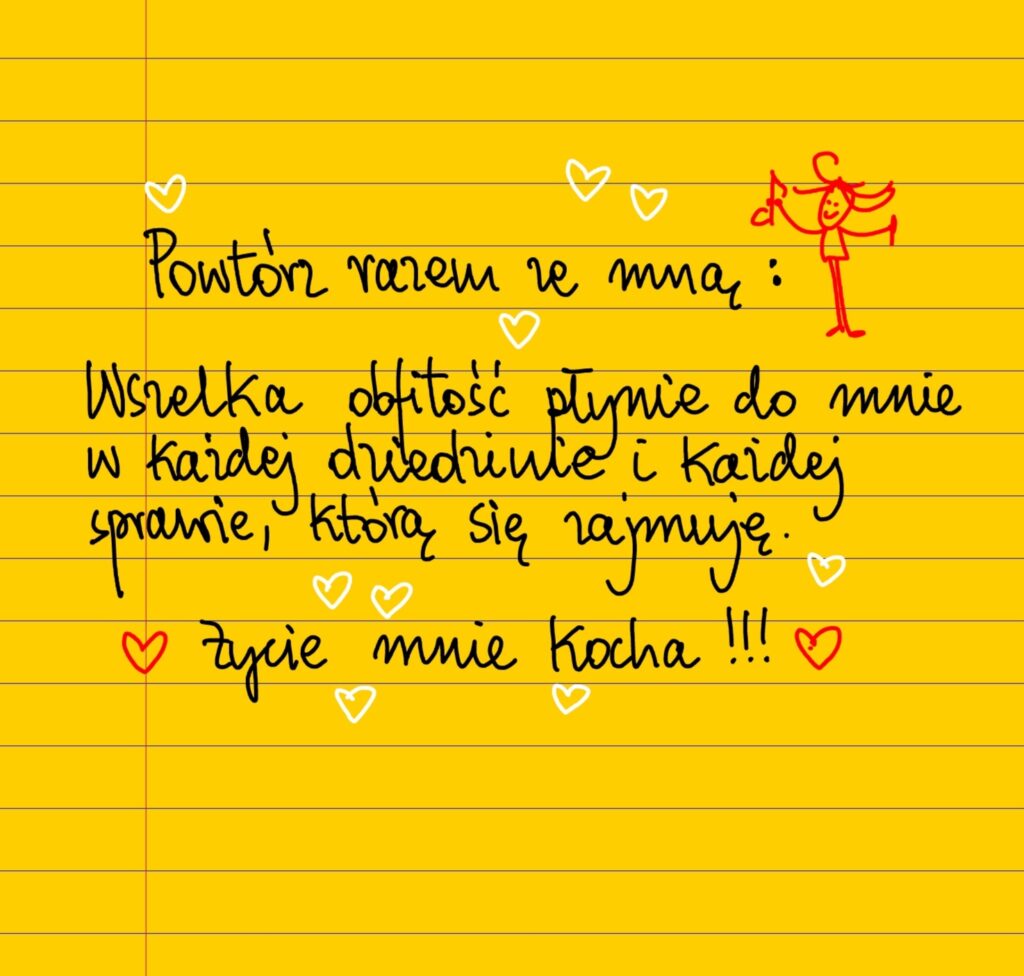 Powtórz razem ze mną:
Wszelka obfitość płynie do mnie
w każdej dziedzinie i każdej
sprawie, którą się zajmuję.
Życie mnie kocha!!!